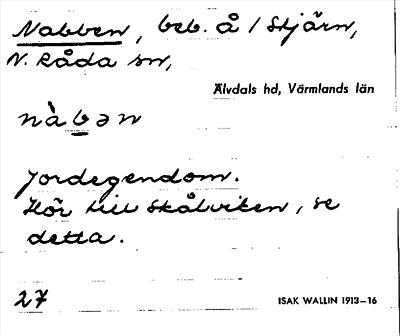 Nabben, beb. å / Stjärn,
N. Råda sn,
Älvdals hd, Värmlands län
nàbən
Jordegendom.
Hör till Skålviken, se
detta.
27
ISAK WALLIN 1913–16